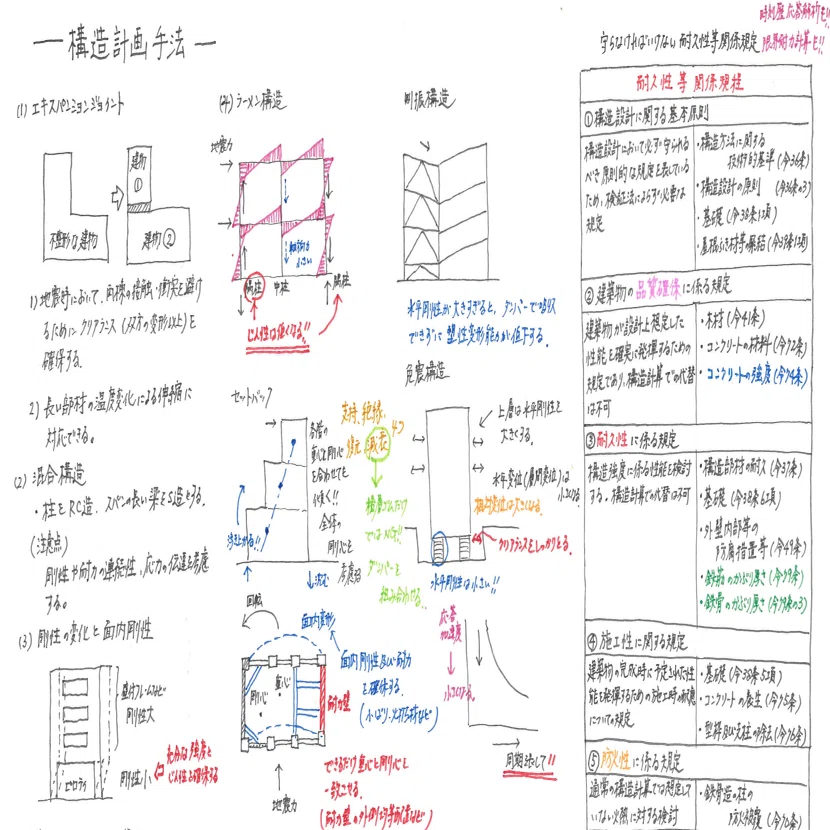 構造計画手法
(1) エキスパンションジョイント
建物
①
不整形な建物
建物②
1) 地震時において、両棟の接触・衝突を避け
るためにクリアランス(双方の変形以上)を
確保する。
2) 長い部材の温度変化による伸縮に
対応できる。
(2) 混合構造
・柱をRC造、スパンの長い梁をS造とする。
(注意点)
剛性や耐力の連続性、応力の伝達を考慮
する。
(3) 剛性の変化と面内剛性
壁付フレームなど
剛性大
ピロティ
剛性小
充分な強度と
じん性を確保する
(4) ラーメン構造
地震力
軸方向力
小さい
隅柱
中柱
隅柱
じん性は低くなる!!
セットバック
各階の
重心と剛心
を合わせても
全体の
剛心を
考慮する
浮き上がる!!
沈む
回転
面内変形
剛心
重心
耐力壁
面内剛性及び耐力
を確保する。
(小ばり、火打ち材など)
できるだけ重心と剛心を
一致させる。
(耐力壁の外周均等配置など)
地震力
制振構造
水平剛性が大きすぎると、ダンパーで
できずに塑性変形能力が低下する。
免震構造
支持、絶縁、
復元、減衰
4つ
積層ゴムだけ
ではNG!!
ダンパーを
組み合わせる。
上層は水平剛性を
大きくする。
水平変位(層間変位)は
小さくなる。
相対変位は大きくなる。
クリアランスをしっかりとる。
水平剛性は小さい!!
応答
加速度
小さくなる
周期を永くして!!
時刻歴応答解析も!!
守らなければいけない耐久性等関係規定
限界耐力計算も!!
耐久性等関係規程
①構造設計に関する基本原則
構造設計において必ず守られる
べき原則的な規定を表している
ため、検証法によらず必要な
規定
・構造方法に関する
技術的基準(令36条)
・構造設計の原則(令36条の3)
・基礎(令38条1項)
・屋根ふき材等の緊結(令39条1項)
②建築物の品質確保に係る規定
建築物が設計上想定した
性能を確実に発揮するための
規定であり、構造計算での代替
は不可
・木材(令41条)
・コンクリートの材料(令72条)
・コンクリートの強度(令74条)
③耐久性に係る規定
構造強度に係る性能を検討
する。構造計算での代替は不可
・構造部材の耐久(令37条)
・基礎(令38条6項)
・外壁内部等の
防腐措置等(令49条)
・鉄筋のかぶり厚さ(令79条)
・鉄骨のかぶり厚さ(令79条の3)
④施工性に関する規定
建築物の完成時に予定された性
能を発揮するための施工時の配慮
についての規定
・基礎(令38条5項)
・コンクリートの養生(令75条)
・型枠及び支柱の除去(令76条)
⑤防火性に係る規定
通常の構造計算では規定して
いない火熱に対する検討
・鉄骨造の柱の
防火被覆(令70条)